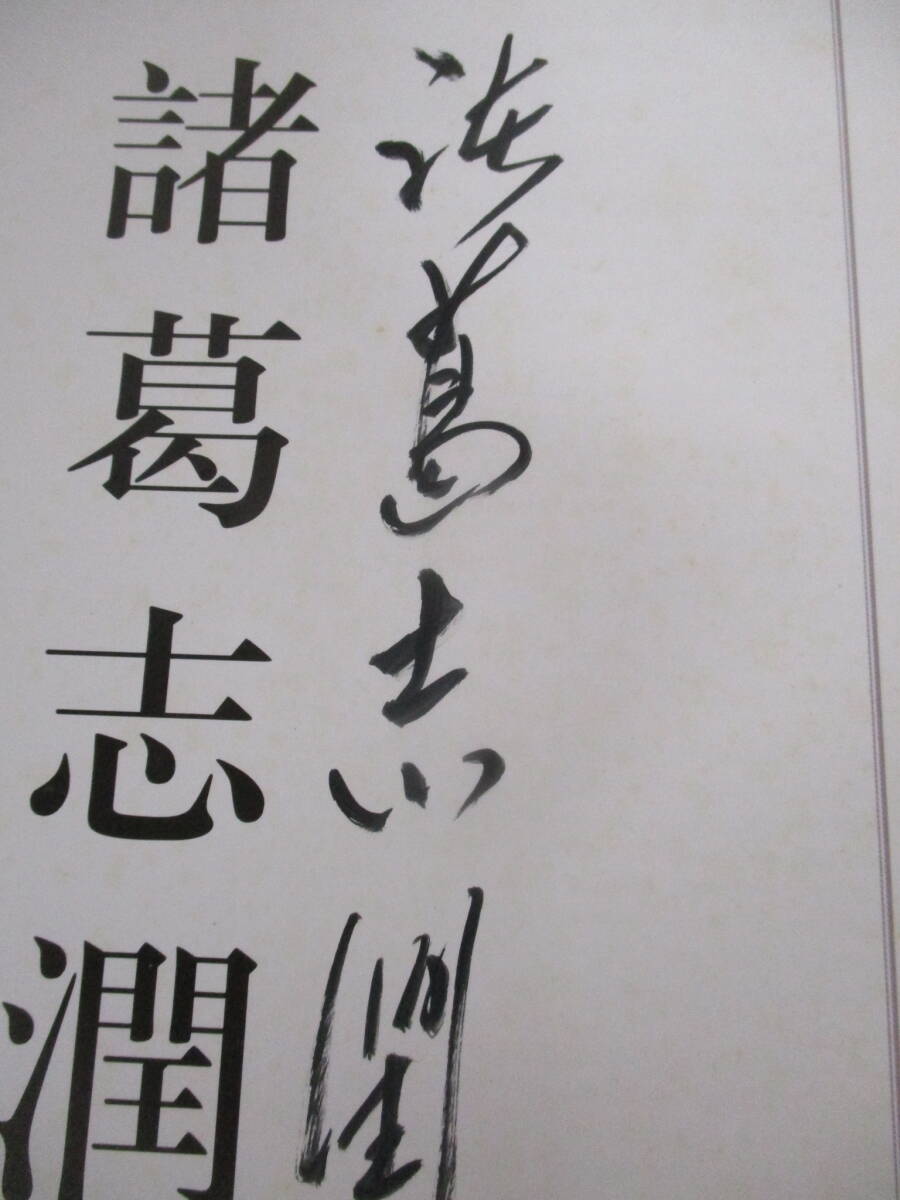 諸葛志潤
諸葛志潤